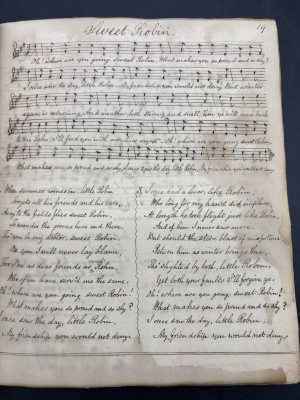 Sweet Robin.
19
Oh! where are you going, sweet Robin, What makes you so proud and so shy?
I once saw the day, little Robin, My friendship you would not deny. But winter
again is returning, And weather both strong and snell, You will come back
little Robin, I'll feed you with Oh! where are you going, sweet Robin,
What makes you so proud and so shy, I once saw the day, little Robin, My friendship you would not deny.
When summer comes in, little Robin
forgets all his friends and his care,
Away to the fields flies sweet Robin,
To wander the groves here and there.
Tho' you be my debtor, sweet Robin
On you I will never lay blame,
For I've as dear friends as Robin
Who often have served me the same.
Oh! where are you going sweet Robin!
What makes you so proud and so shy?
I once saw the day, little Robin,
My friendship you would not deny.
3. I once had a lover, like Robin
Who long for my hand did implore,
At length he took flight just like Robin
And him I never saw more.
But should the stern blast of misfortune
Return him as winter brings thee,
Tho' slighted by both, little Robin
Yet both your faults I'll forgi'e ye.
Oh! where are you going, sweet Robin!
What makes you so proud and so shy?
I once saw the day, little Robin,
My friendship you would not deny.